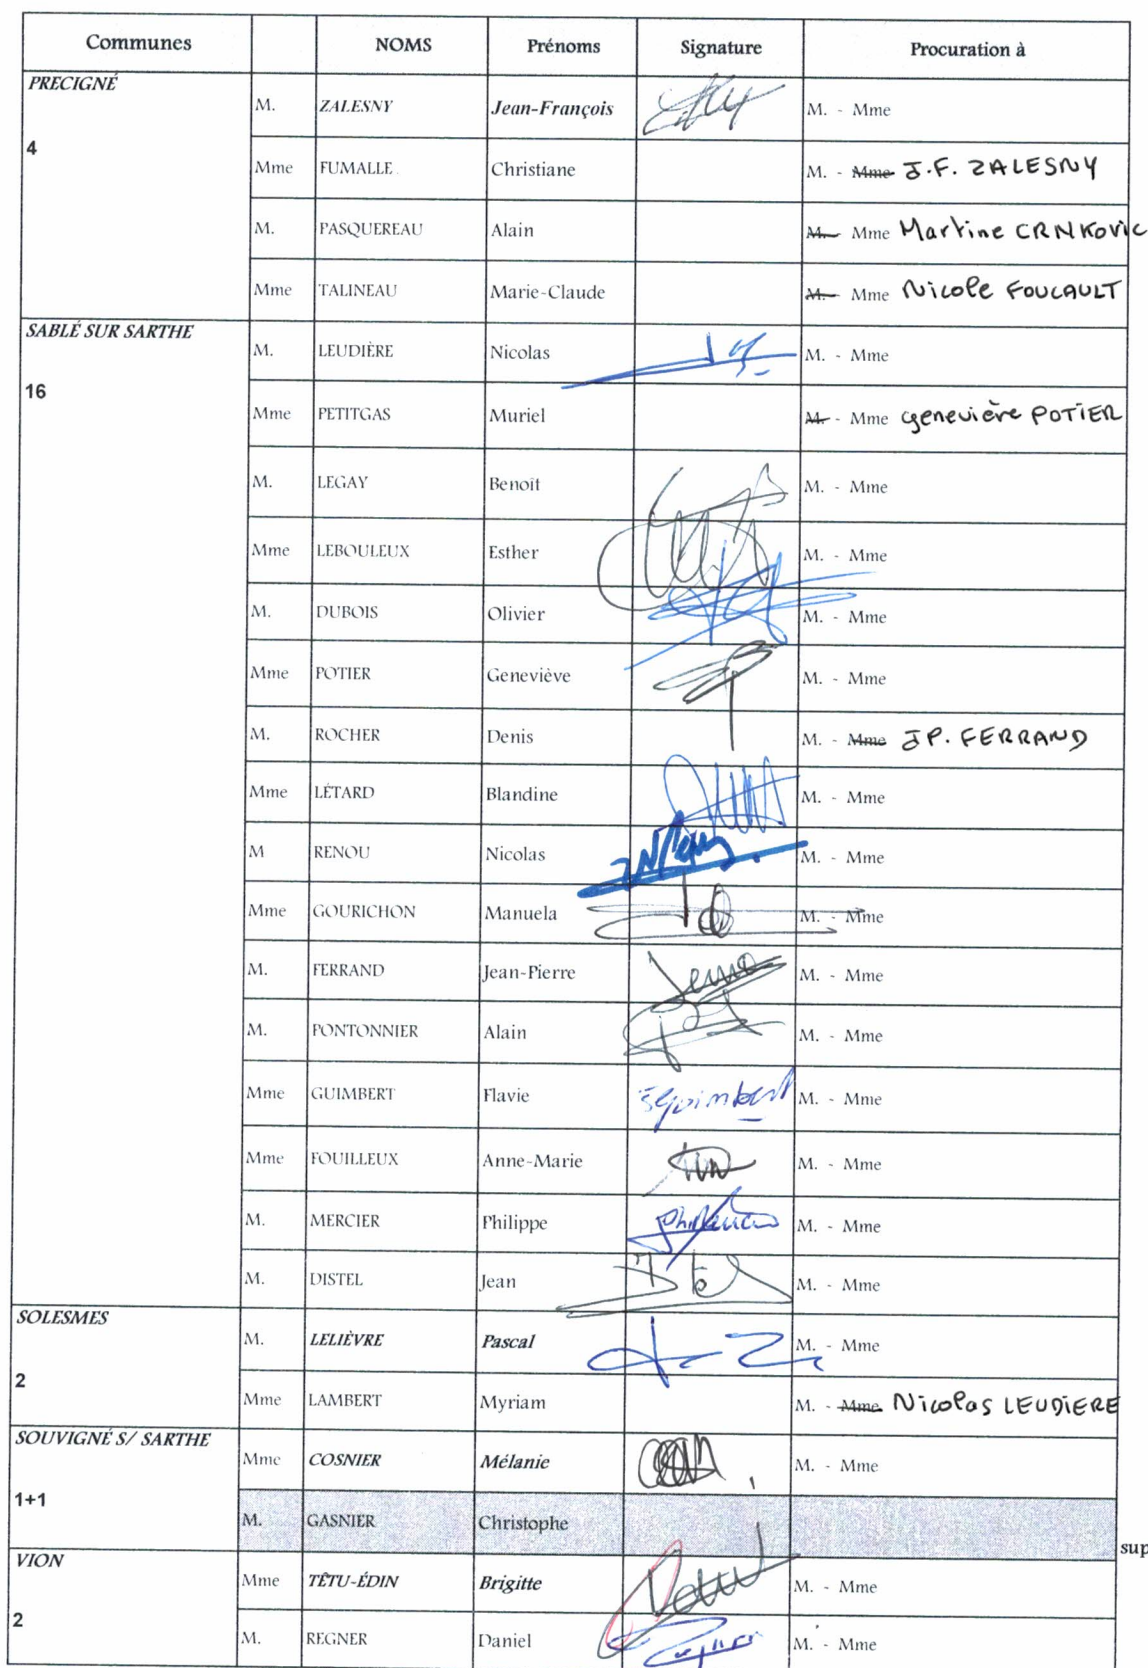 Communes NOMS Prénoms Signature Procuration à
PRECIGNÉ
M. ZALESNY Jean-François M. - Mme
4
Mme FUMALLE Christiane M. - Mme J.F. ZALESNY
M. PASQUEREAU Alain M. - Mme Martine CRNKovic
Mme TALINEAU Marie-Claude M. - Mme Nicole FOUCAULT
SABLÉ SUR SARTHE
M. LEUDIÈRE Nicolas M. - Mme
16
Mme PETITGAS Muriel M. - Mme Geneviève POTIER
M. LEGAY Benoît M. - Mme
Mme LEBOULEUX Esther M. - Mme
M. DUBOIS Olivier M. - Mme
Mme POTIER Geneviève M. - Mme
M. ROCHER Denis M. - Mme JP. FERRAND
Mme LÉTARD Blandine M. - Mme
M RENOU Nicolas M. - Mme
Mme GOURICHON Manuela M. - Mme
M. FERRAND Jean-Pierre M. - Mme
M. PONTONNIER Alain M. - Mme
Mme GUIMBERT Flavie M. - Mme
Mme FOUILLEUX Anne-Marie M. - Mme
M. MERCIER Philippe M. - Mme
M. DISTEL Jean M. - Mme
SOLESMES
M. LELIÈVRE Pascal M. - Mme
2
Mme LAMBERT Myriam M. - Mme Nicolas LEUDIERE
SOUVIGNÉ S/ SARTHE
Mme COSNIER Mélanie M. - Mme
1+1
M. GASNIER Christophe
sup
VION
Mme TÊTU-ÉDIN Brigitte M. - Mme
2
M. REGNER Daniel M. - Mme